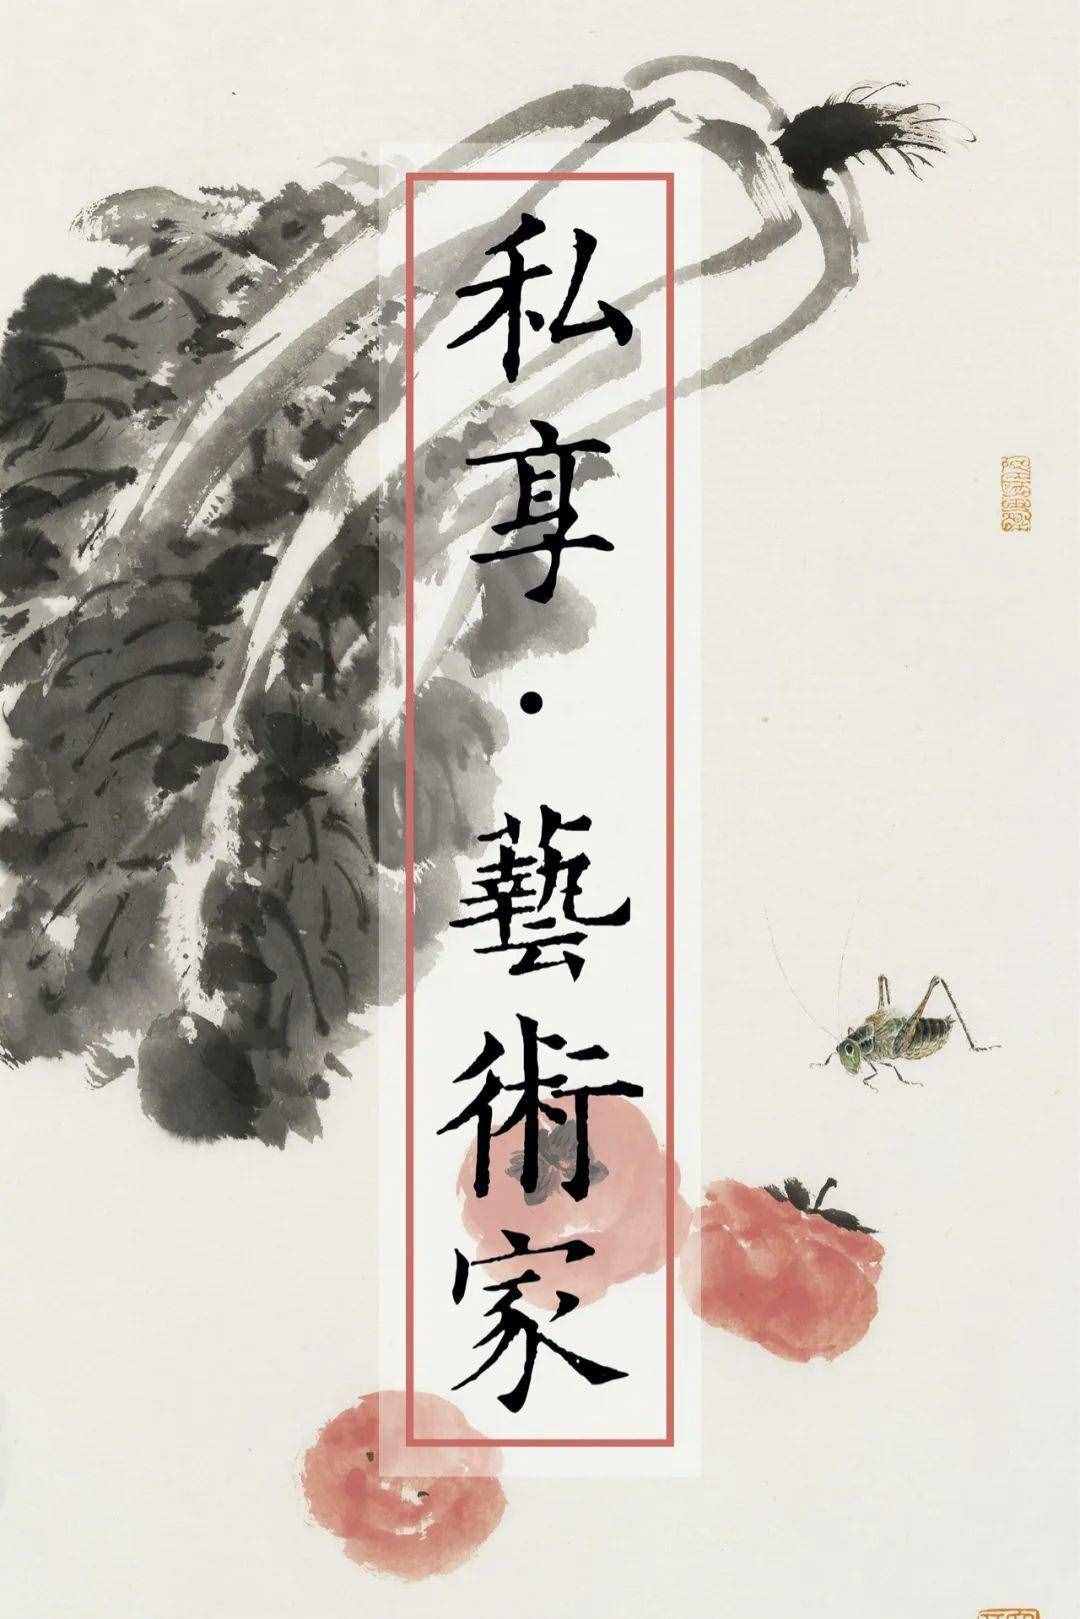 私享·藝術家